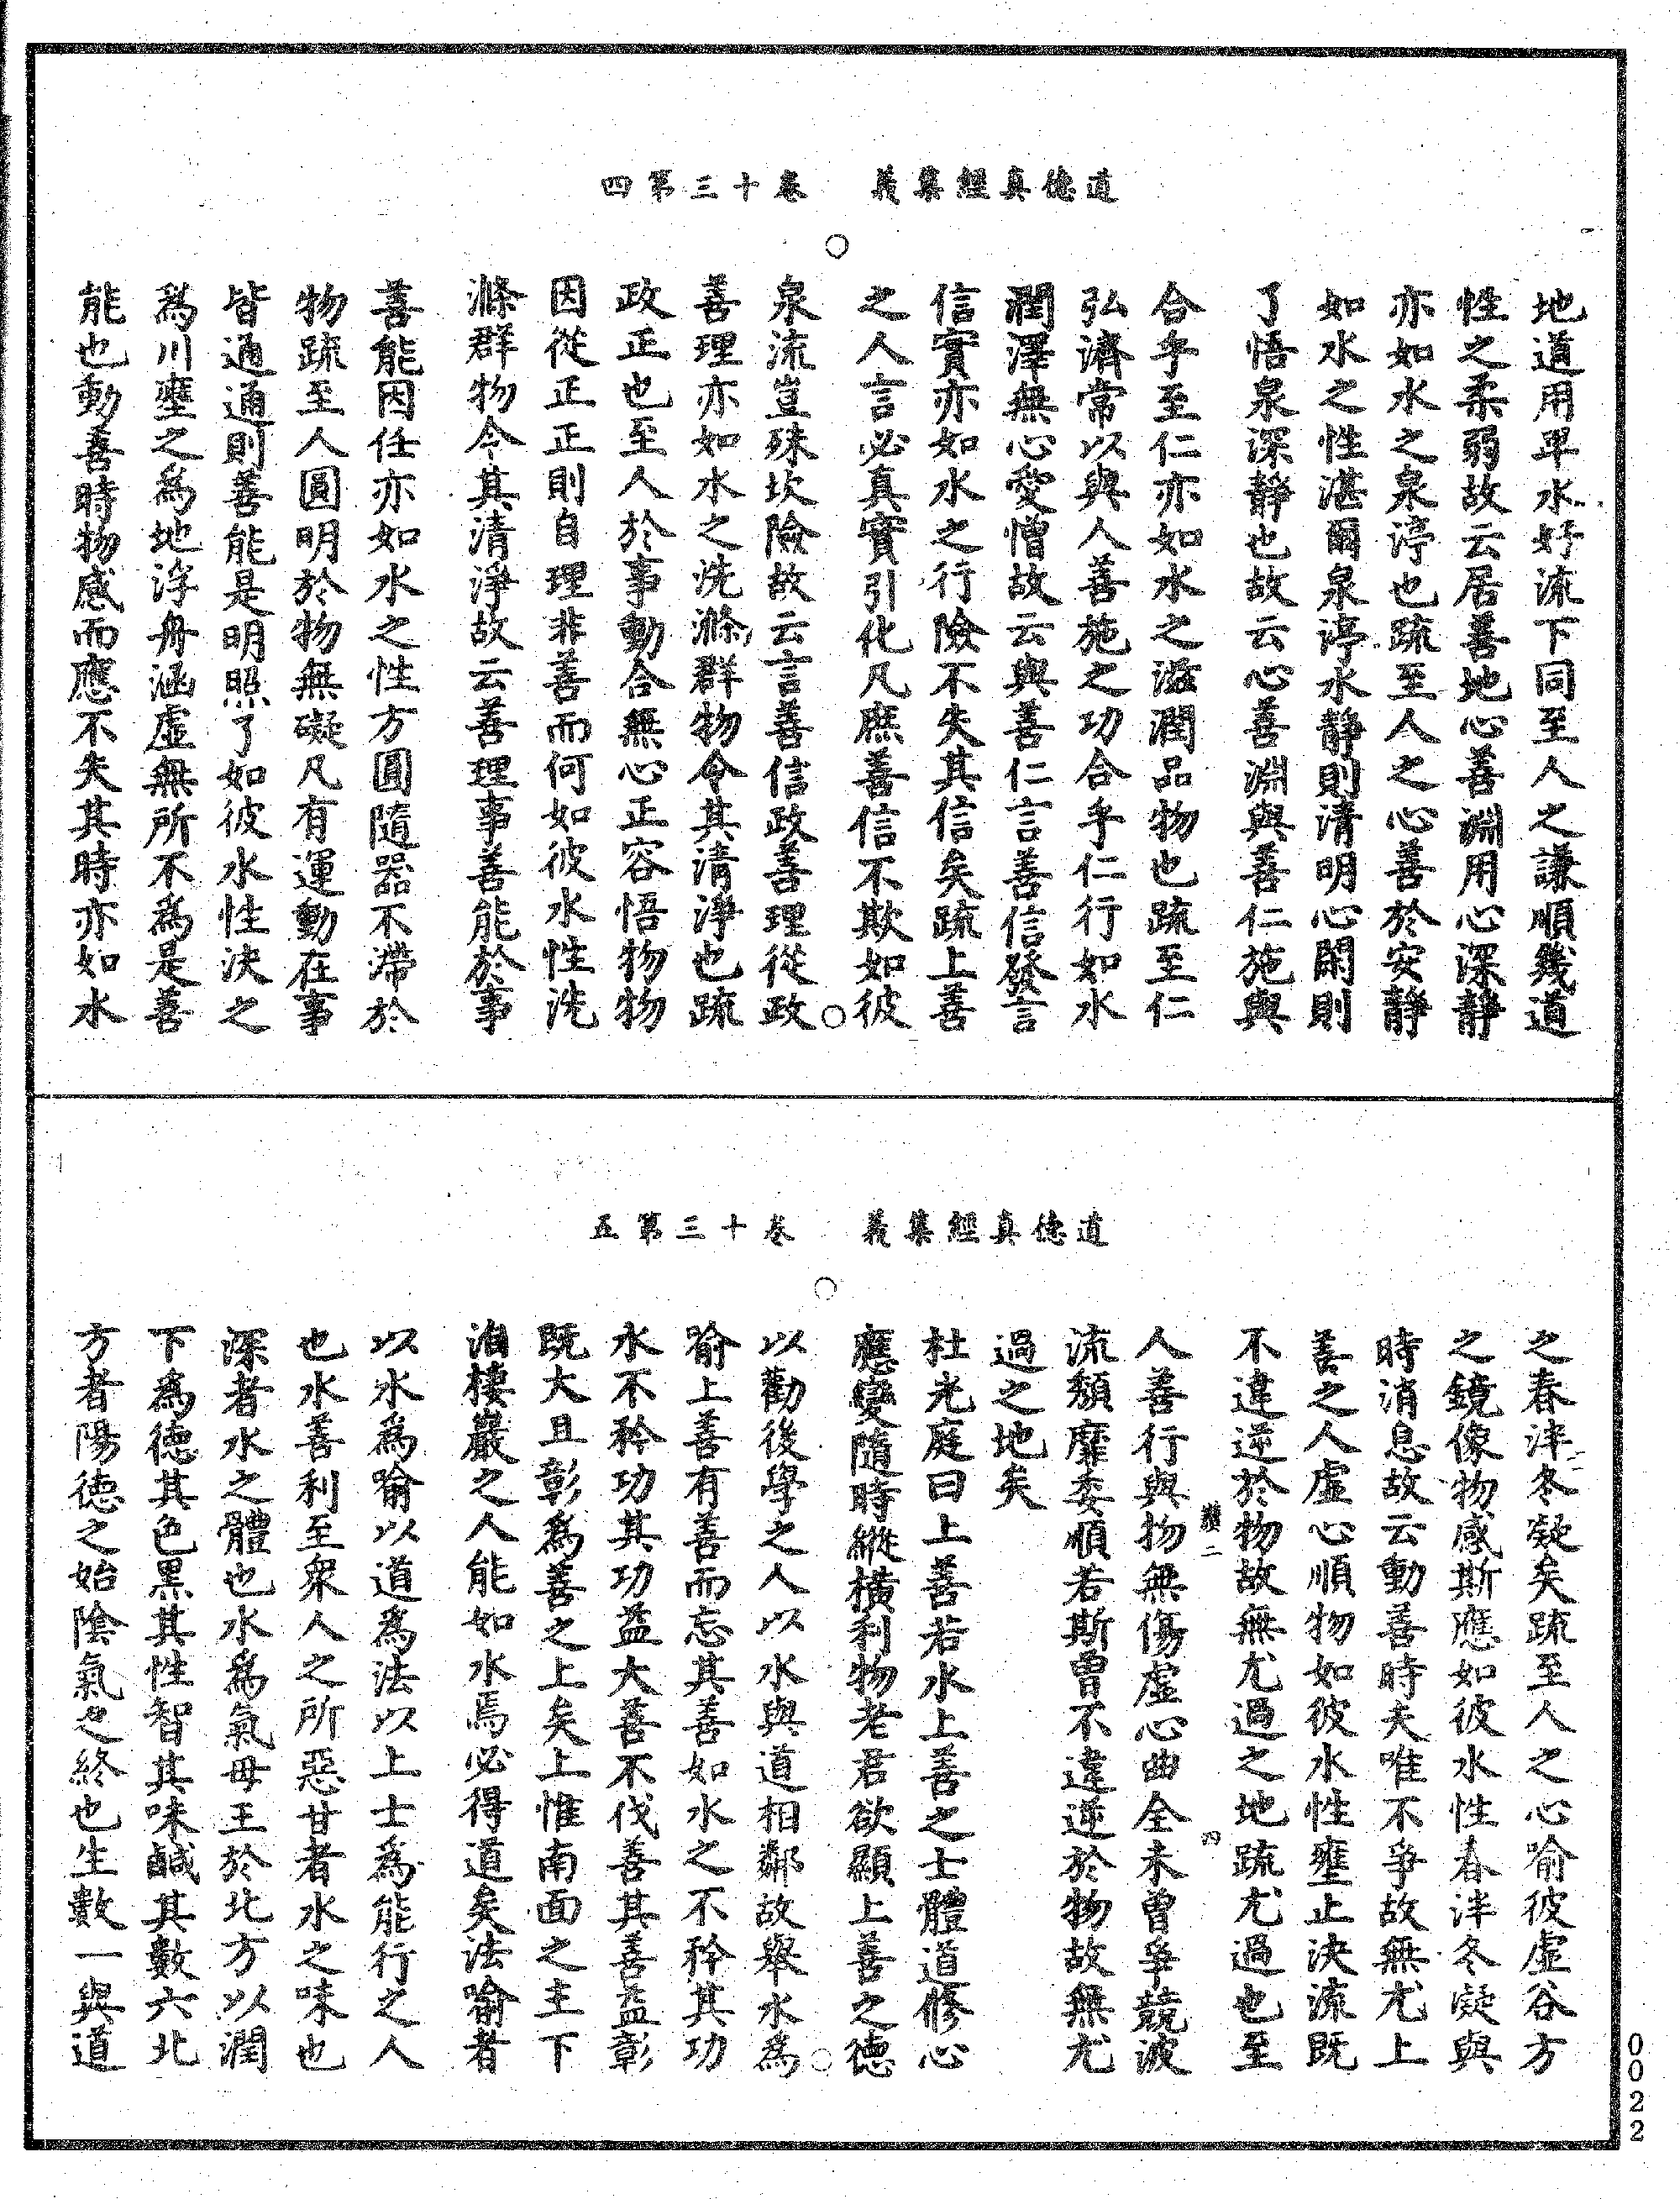 道德真經集義　卷十三第四
地道用卑水好流下同至人之謙順幾道
性之柔弱故云居善地心善淵用心深靜
亦如水之泉渟也疏至人之心善於安靜
如水之性湛爾泉渟水靜則清明心閑則
了悟泉深靜也故云心善淵與善仁施與
合乎至仁亦如水之滋潤品物也疏至仁
弘濟常以與人善施之功合乎仁行如水
潤澤無心愛憎故云與善仁言善信發言
信實亦如水之行險不失其信矣疏上善
之人言必真實引化凡庶善信不欺如彼
泉流豈殊坎險故云言善信政善理從政
善理亦如水之洗滌群物令其清淨也疏
政正也至人於事動合無心正容悟物物
因從正正則自理非善而何如彼水性洗
滌群物令其清淨故云善理事善能於事
善能因任亦如水之性方圓隨器不滯於
物疏至人圓明於物無礙凡有運動在事
皆通通則善能是明照了如彼水性決之
為川壅之為地浮舟涵虛無所不為是善
能也動善時物感而應不失其時亦如水
道德真經集義　卷十三第五
之春泮冬凝矣疏至人之心喻彼虛谷方
之鏡像物感斯應如彼水性春泮冬凝與
時消息故云動善時夫唯不爭故無尤上
善之人虛心順物如彼水性壅止決流既
不違逆於物故無尤過之地疏尤過也至
二　四
人善行與物無傷虛心曲全未曾爭競波
流頹靡委順若斯曾不違逆於物故無尤
過之地矣
杜光庭曰上善若水上善之士體道修心
應變隨時縱橫利物老君欲顯上善之德
以勸後學之人以水與道相鄰故舉水為
喻上善有善而忘其善如水之不矜其功
水不矜功其功益大善不伐善其善益彰
既大且彰為善之上矣上惟南面之主下
洎棲巖之人能如水焉必得道矣法喻者
以水為喻以道為法以上士為能行之人
也水善利至衆人之所惡甘者水之味也
深者水之體也水為氣母王於北方以潤
下為德其色黑其性智其味鹹其數六北
方者陽德之始陰氣之終也生數一與道
0022